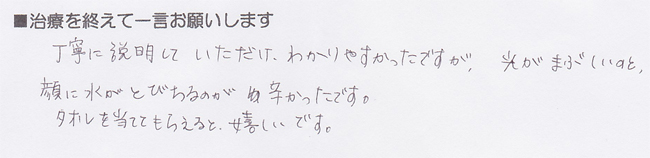 ■治療を終えて一言お願いします
丁寧に説明して いただけ、わかりやすかったですが、 光がまぶしいのと、
顔に水がとびちるのが 辛かったです。
タオルを当ててもらえると、嬉しいです。